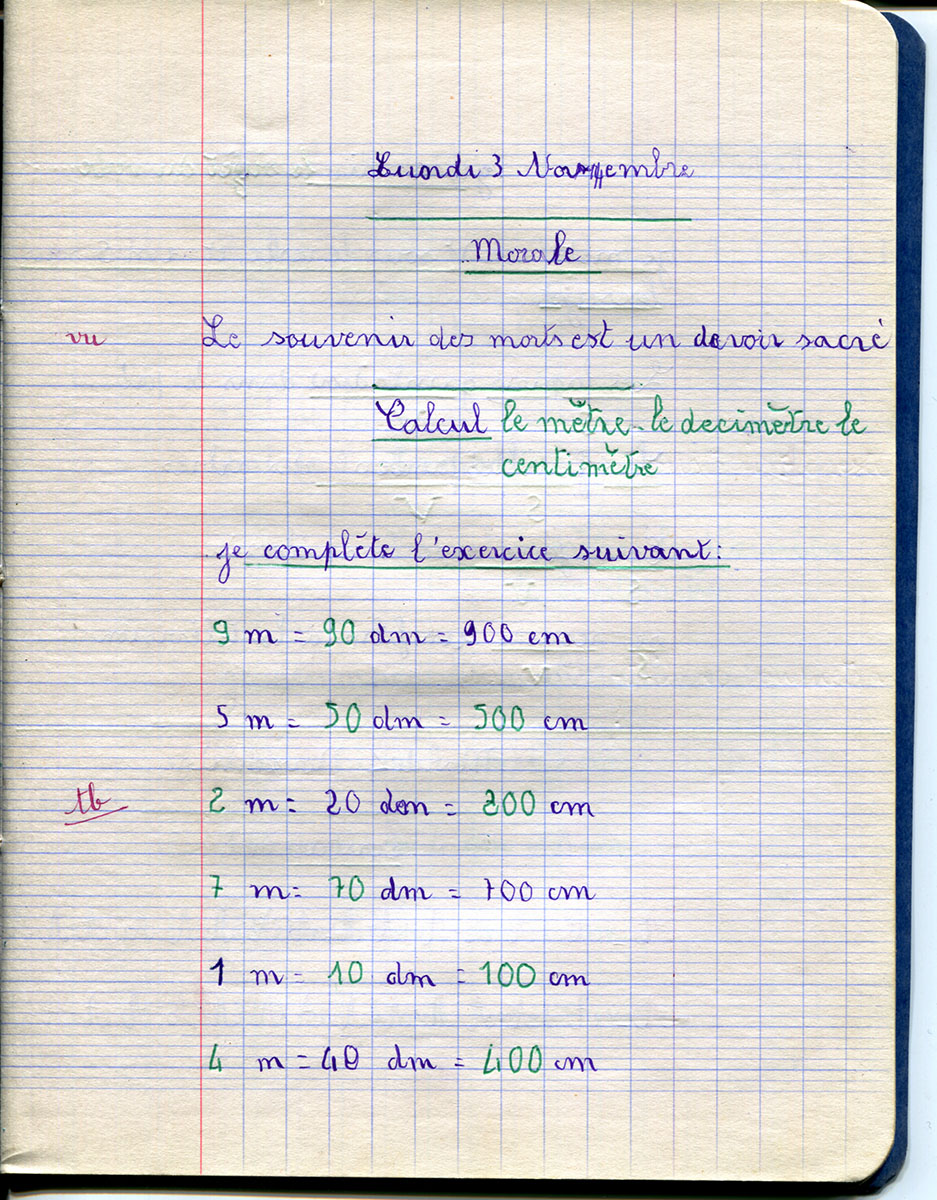 Lundi 3 Novembre
Morale
vu Le souvenir des morts est un devoir sacré
Calcul le mètre - le decimètre le
centimètre
je complète l'exercice suivant :
9 m = 90 dm = 900 cm
5 m = 50 dm = 500 cm
tb 2 m = 20 dm = 200 cm
7 m = 70 dm = 700 cm
1 m = 10 dm = 100 cm
4 m = 40 dm = 400 cm